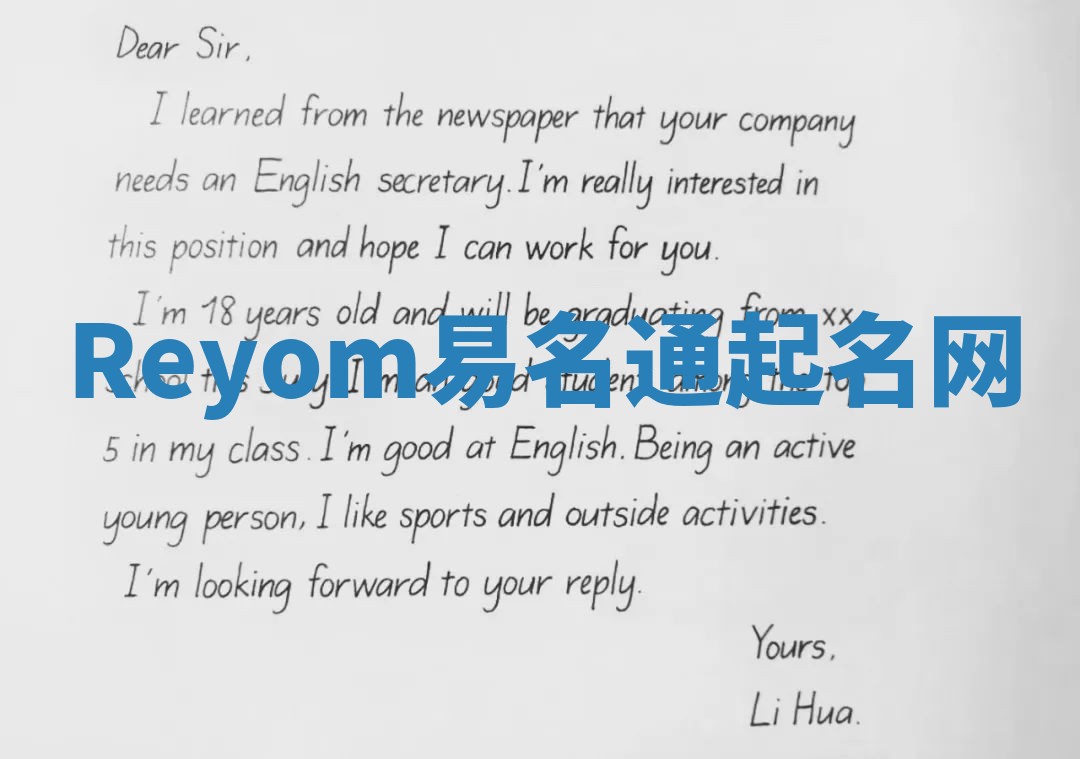 Dear Sir,
I learned from the newspaper that your company
needs an English secretary. I'm really interested in
this position and hope I can work for you.
I'm 18 years old and will be graduating from xx
Reyom易名通起名网
school this July. I'm a good student among the top
5 in my class. I'm good at English. Being an active
young person, I like sports and outside activities.
I'm looking forward to your reply.
Yours,
Li Hua.